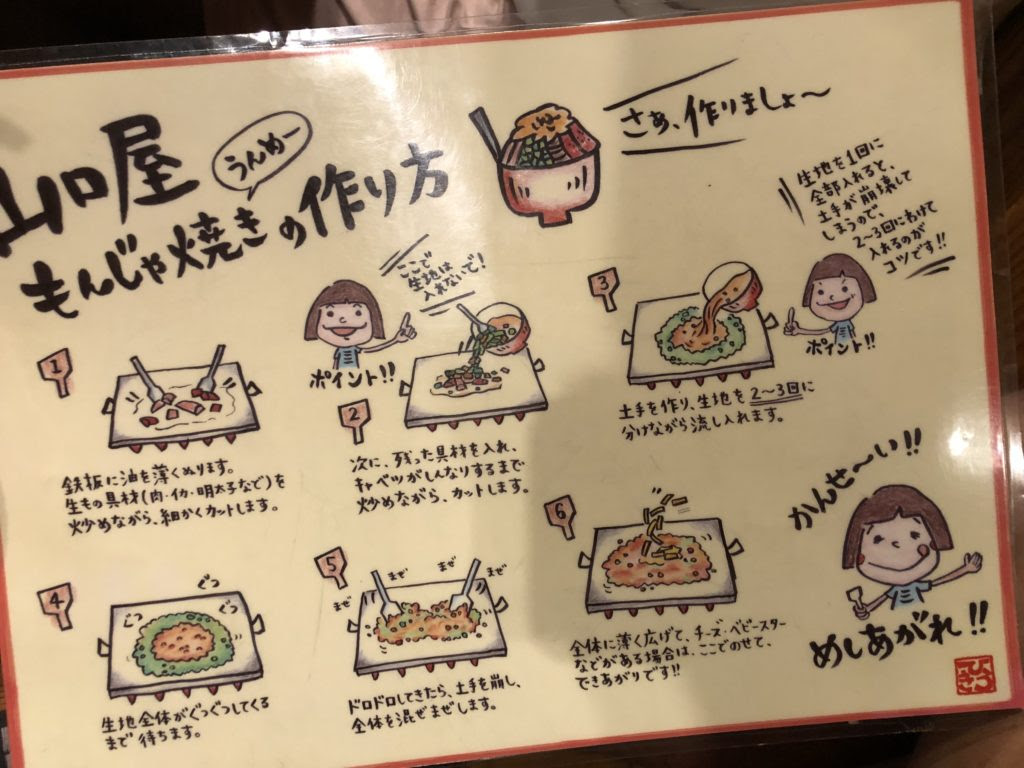 山口屋
うんめー
もんじゃ焼きの作り方
さぁ、作りましょ〜
1
鉄板に油を薄くぬります。
生もの具材(肉・イカ・明太子など)を
炒めながら、細かくカットします。
ここで
生地は
入れないで!
ポイント!!
2
次に、残った具材を入れ、
キャベツがしんなりするまで
炒めながら、カットします。
3
土手を作り、生地を2〜3回に
分けながら流し入れます。
生地を1回に
全部入れると、
土手が崩壊して
しまうので、
2〜3回にわけて
入れるのが
コツです!!
ポイント!!
4
ぐつ
ぐつ
ぐつ
生地全体がぐつぐつしてくる
まで待ちます。
5
まぜ
まぜ
まぜ
まぜ
ドロドロしてきたら、土手を崩し、
全体を混ぜまぜします。
6
全体に薄く広げて、チーズ・ベビースター
などがある場合は、ここでのせて、
できあがりです!!
かんせ〜い!!
めしあがれ!!